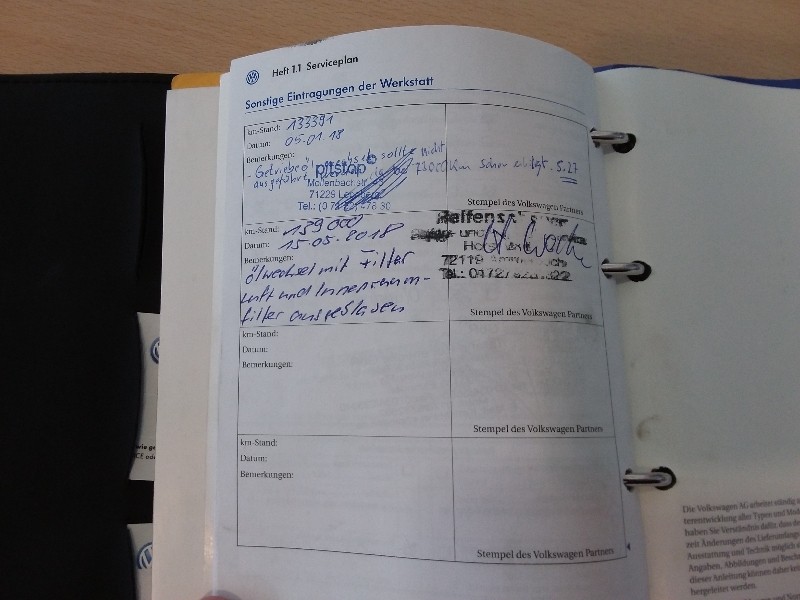 Heft 1.1 Serviceplan
Sonstige Eintragungen der Werkstatt
km-Stand: 133391
Datum: 05.01.18
Bemerkungen:
- Getriebeöl sollte nicht
ausgeführt km schon erledigt. S.27
pitstop
71229
Tel.:
Stempel des Volkswagen Partners
km-Stand: 139000
Datum: 15-05-2018
Bemerkungen:
Ölwechsel mit Filter
Luft und Innenraum-
filter
72119
Tel.:
Stempel des Volkswagen Partners
km-Stand:
Datum:
Bemerkungen:
Stempel des Volkswagen Partners
km-Stand:
Datum:
Bemerkungen:
Stempel des Volkswagen Partners
Die Volkswagen AG arbeitet ständig
terentwicklung aller Typen und
haben Sie Verständnis dafür, dass
zeit Änderungen des Lieferumfangs
Ausstattung und Technik möglich
Angaben, Abbildungen und
dieser Anleitung können daher
hergeleitet werden.